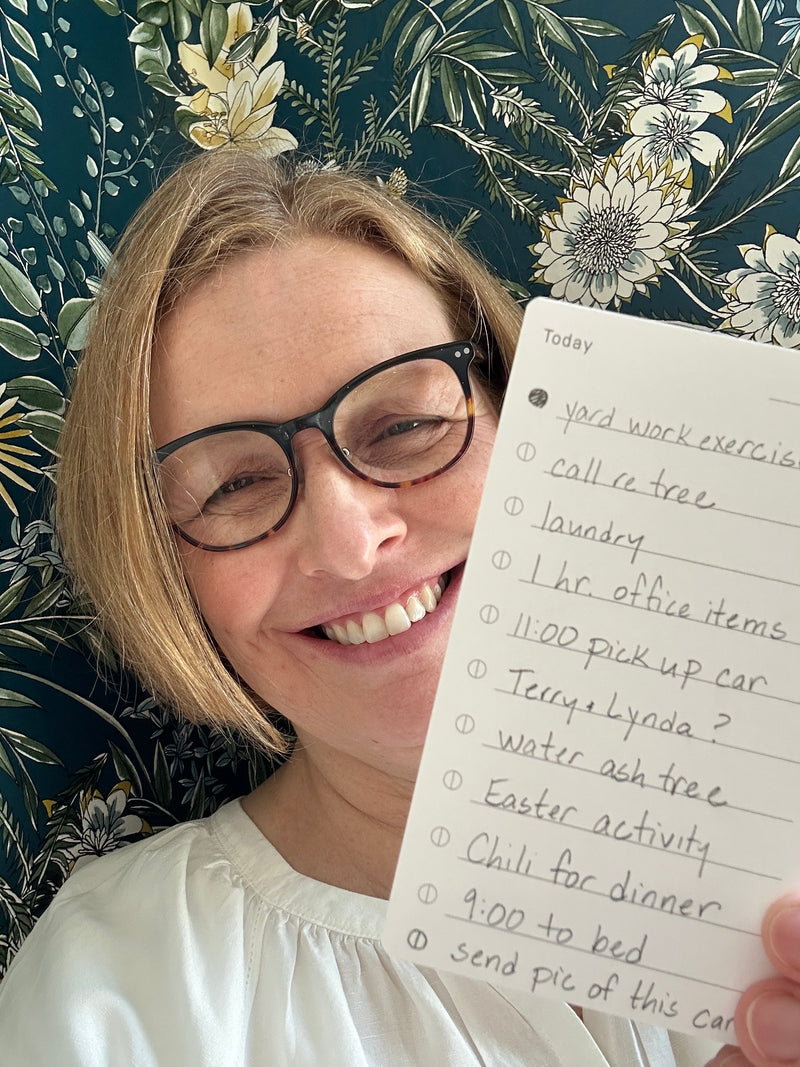 Today
yard work exercis
call re tree
laundry
1 hr. office items
11:00 pick up car
Terry + Lynda ?
water ash tree
Easter activity
Chili for dinner
9:00 to bed
send pic of this car